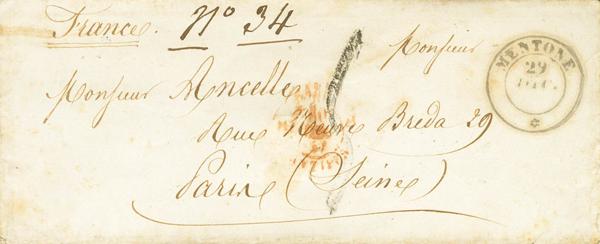 France. Nº 34
Monsieur
Monsieur Ancelle
Rue Neuve Breda 29
Paris (Seine)
MENTONE
29